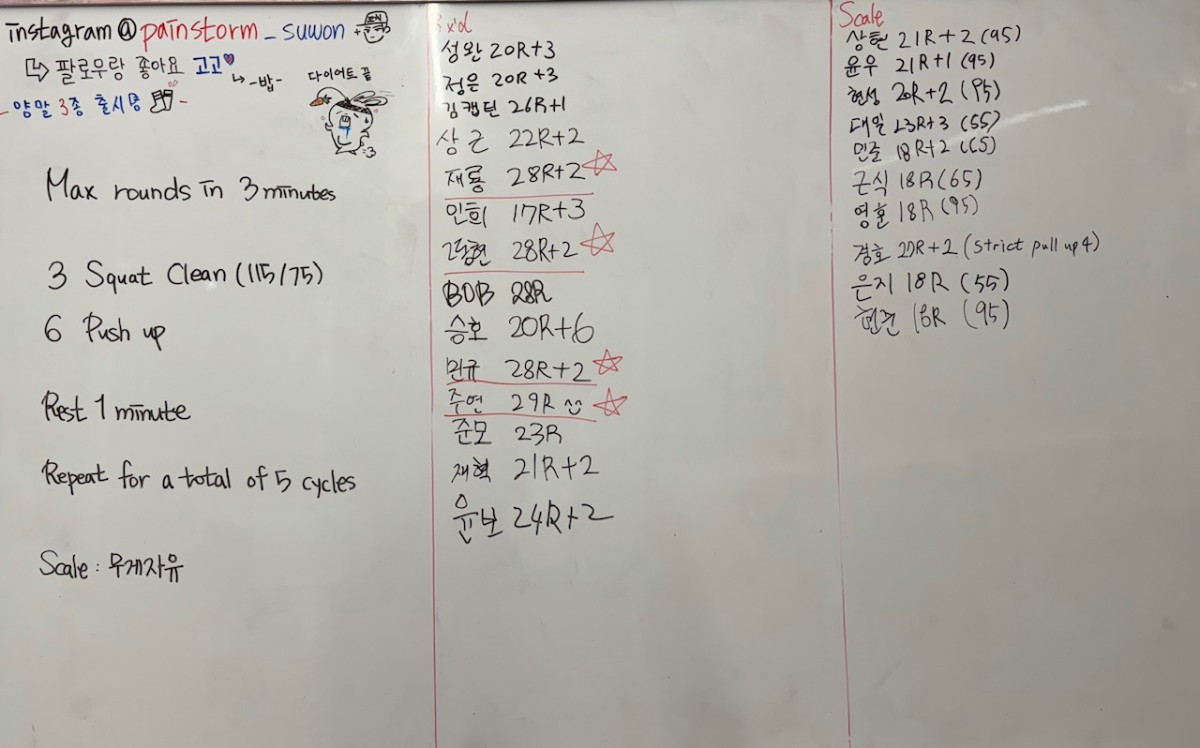 instagram@painstorm_suwon
팔로우랑 좋아요 고고
-밥-
다이어트 끝
- 양말 3종 출시 -
Max rounds in 3 minutes
3 Squat Clean (115/75)
6 Push up
Rest 1 minute
Repeat for a total of 5 cycles
Scale : 무게자유
성완 20R+3
정은 20R+3
김캡틴 26R+1
상근 22R+2
재룡 28R+2
민희 17R+3
28R+2
BOB 28R
승호 20R+6
민규 28R+2
주연 29R ^^
준모 23R
재혁 21R+2
윤보 24R+2
Scale
상현 21R+2 (95)
윤우 21R+1 (95)
현성 20R+2 (95)
대일 23R+3 (55)
민준 18R+2 (65)
근식 18R (65)
영훈 18R (95)
경호 20R+2 (strict pull up 4)
은지 18R (55)
18R (95)